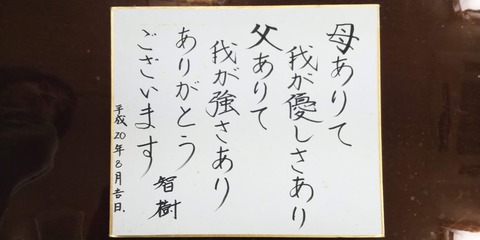 母ありて
我が優しさあり
父ありて
我が強さあり
ありがとう
ございます
智樹
平成20年8月吉日.